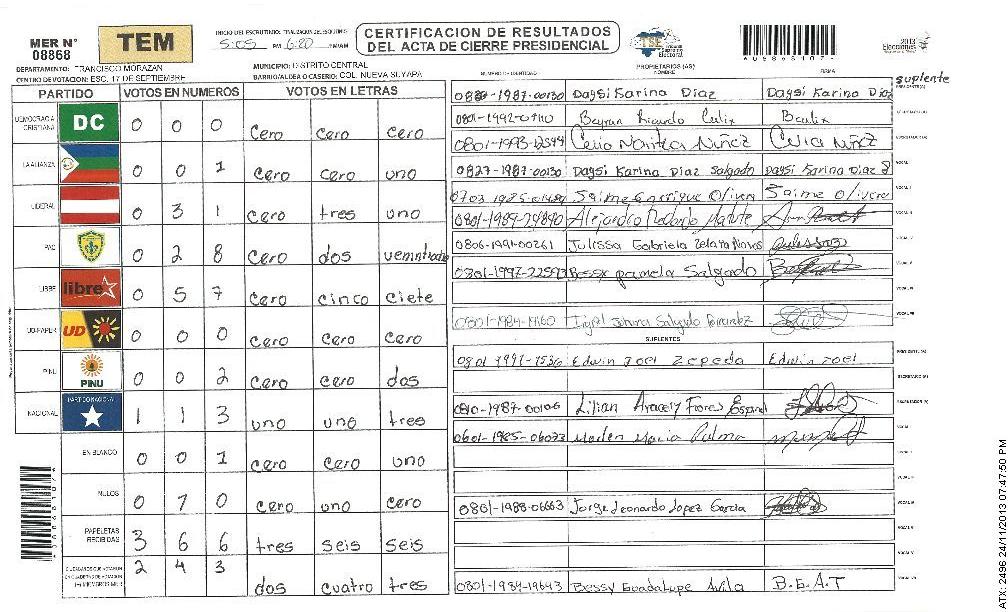 MER N° 08868
TEM
INICIO DEL ESCRUTINIO: FINALIZACION DEL ESCRUTINIO
5:05 PM 6:20
CERTIFICACION DE RESULTADOS
DEL ACTA DE CIERRE PRESIDENCIAL
TSE Tribunal Supremo Electoral
2013 Elecciones
DEPARTAMENTO: FRANCISCO MORAZAN
MUNICIPIO: DISTRITO CENTRAL
CENTRO DE VOTACION: ESC. 17 DE SEPTIEMBRE
BARRIO/ALDEA O CASERIO: COL. NUEVA SUYAPA
NUMERO DE IDENTIDAD PROPIETARIOS (AS) NOMBRE FIRMA
suplente
PARTIDO VOTOS EN NUMEROS VOTOS EN LETRAS
DEMOCRACIA CRISTIANA DC 0 0 0 Cero cero cero
LA ALIANZA 0 0 1 cero cero uno
LIBERAL 0 3 1 cero tres uno
PAC 0 2 8 cero dos
LIBRE libre 0 5 7 cero cinco ciete
UD-FAPER UD 0 0 0 cero cero cero
PINU PINU 0 0 2 cero cero dos
NACIONAL PARTIDO NACIONAL 1 1 3 uno uno tres
EN BLANCO 0 0 1 cero cero uno
NULOS 0 1 0 cero uno cero
PAPELETAS RECIBIDAS 3 6 6 tres seis seis
CIUDADANOS QUE VOTARON EN CUADERNO DE VOTACION 2 4 3 dos cuatro tres
-1987-00130 Daysi Karina Diaz Daysi Karina Diaz
0801-1992-
0801-1993-12544 Celia Núñez Celia Núñez
0827-1987-00130 Daysi Karina Diaz Salgado Daysi Karina Diaz S
0703-1985- Jaime Enrique Jaime
0801-1989- Alejandro
0806-1991-00261 Julissa Gabriela Zelaya
0801-1997-22593 Bessy pamela Salgado
0801-1984- Johana Salgado
SUPLENTES
Edwin Joel Zepeda Edwin Joel
-1987-00106 Lilian Aracely Flores
0601-1985-06073 Maria Palma
0801-1988-06663 Jorge Leonardo Lopez Garcia
0801-1984-19643 Bessy Guadalupe Avila B.G.A.T
ATX: 2496 24/11/2013 07:47:50 PM